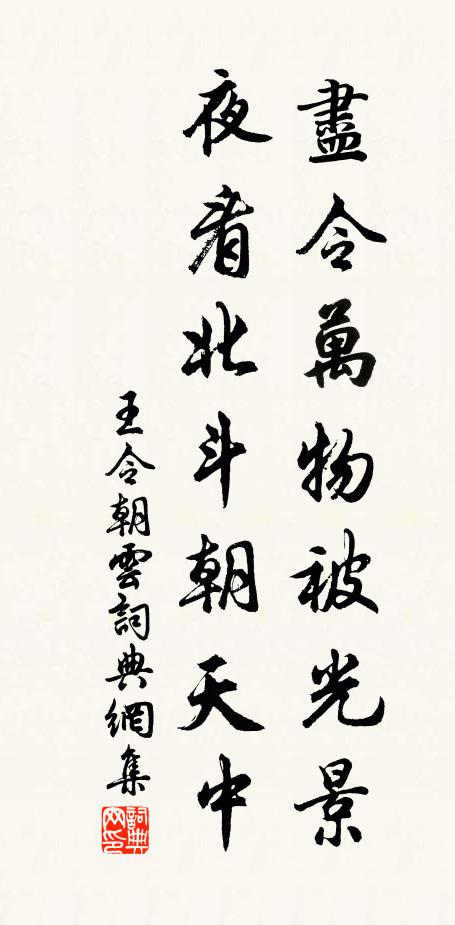 盡令萬物被光景
夜看北斗朝天中
王令朝雲詞典網集
詞典網印